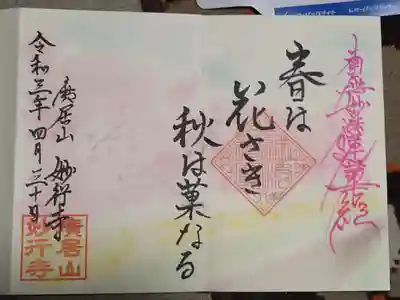 南無妙法蓮華経
春は
花さき
秋は菓なる
廣居山 妙行寺
令和三年 四月三十日
廣居山
妙行寺